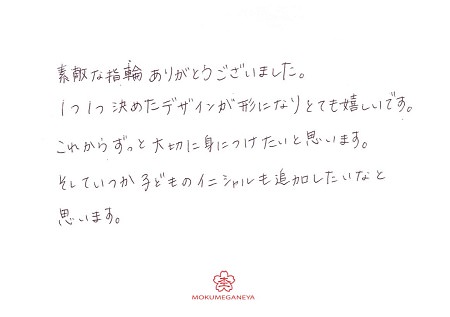 素敵な指輪ありがとうございました。
1つ1つ決めたデザインが形になりとても嬉しいです。
これからずっと大切に身につけたいと思います。
そしていつか子どものイニシャルも追加したいなと
思います。
MOKUMEGANEYA